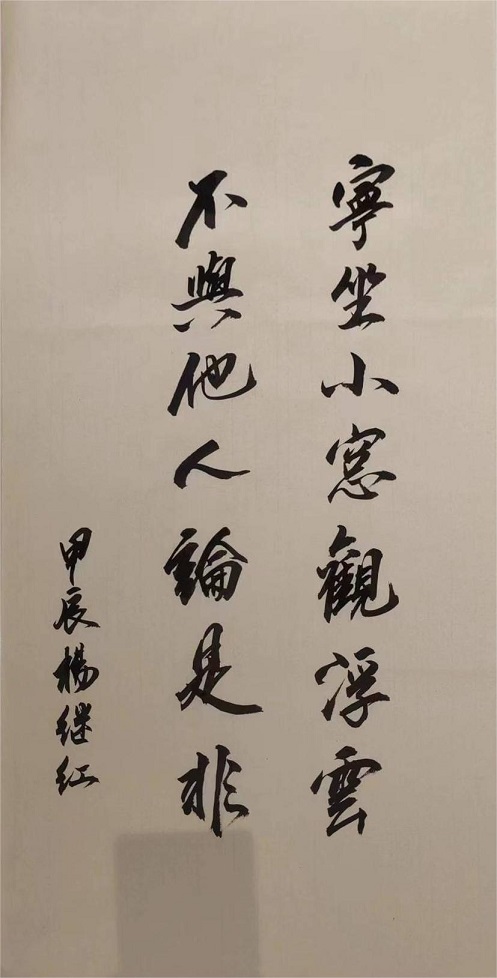 寧坐小窓觀浮雲
不與他人論是非
甲辰楊继红